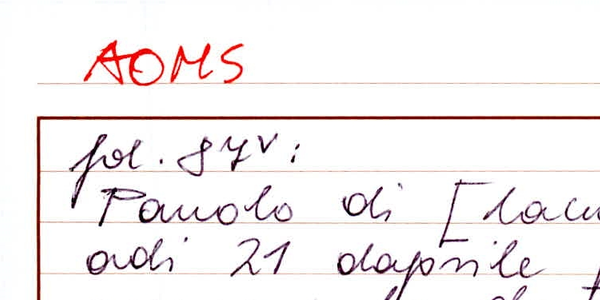 AOMS
fol. 87v:
Pauolo di [lacu
adi 21 daprile